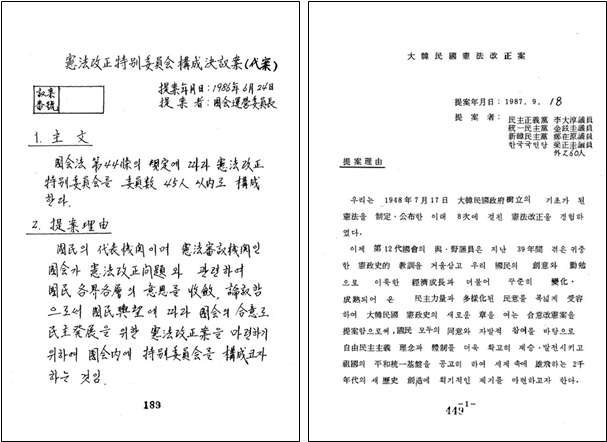 憲法改正特別委員会構成決議案(代案)
議案
番號
提案年月日 : 1986年 6月 24日
提 案 者 : 國会運營委員長
1. 主 文
國会法 第44條의 規定에 따라 憲法改正
特別委員会를 委員數 45人 以内로 構成
한다.
2. 提案理由
國民의 代表機関이며 憲法審議機関인
國会가 憲法改正問題와 관련하여
國民 各界各層의 意思를 收斂, 論議함
으로써 國民與望에 따라 國会의 合意로
民主發展을 위한 憲法改正案을 마련하기
위하여 國会内에 特別委員会를 構成코자
하는 것임.
189
大韓民國憲法改正案
提案年月日 : 1987. 9. 18
提 案 者 : 民主正義黨 李大淳議員
統一民主黨 金鉉圭議員
新韓民主黨 鄭在原議員
한국국민당 梁正圭議員
外 260人
提案理由
우리는 1948年 7月 17日 大韓民國政府樹立의 기초가 된
憲法을 制定·公布한 이래 8次에 걸친 憲法改正을 경험하
였다.
이제 第12代國會의 與·野議員은 지난 39年間 겪은 귀중
한 憲政史的 敎訓을 거울삼고 우리 國民의 創意와 勤勉
으로 이룩한 經濟成長과 더불어 꾸준히 變化·
成熟되어 온 民主力量과 多樣化된 民意를 폭넓게 受容
하여 大韓民國 憲政史의 새로운 章을 여는 合意改憲案을
提案함으로써, 國民 모두의 同意와 자발적 참여를 바탕으로
自由民主主義 理念과 體制를 더욱 확고히 계승·발전시키고
祖國의 平和統一基盤을 공고히 하여 세계 속에 雄飛하는 2千
年代의 새 歷史 創造에 획기적인 계기를 마련하고자 한다.
-1-
449